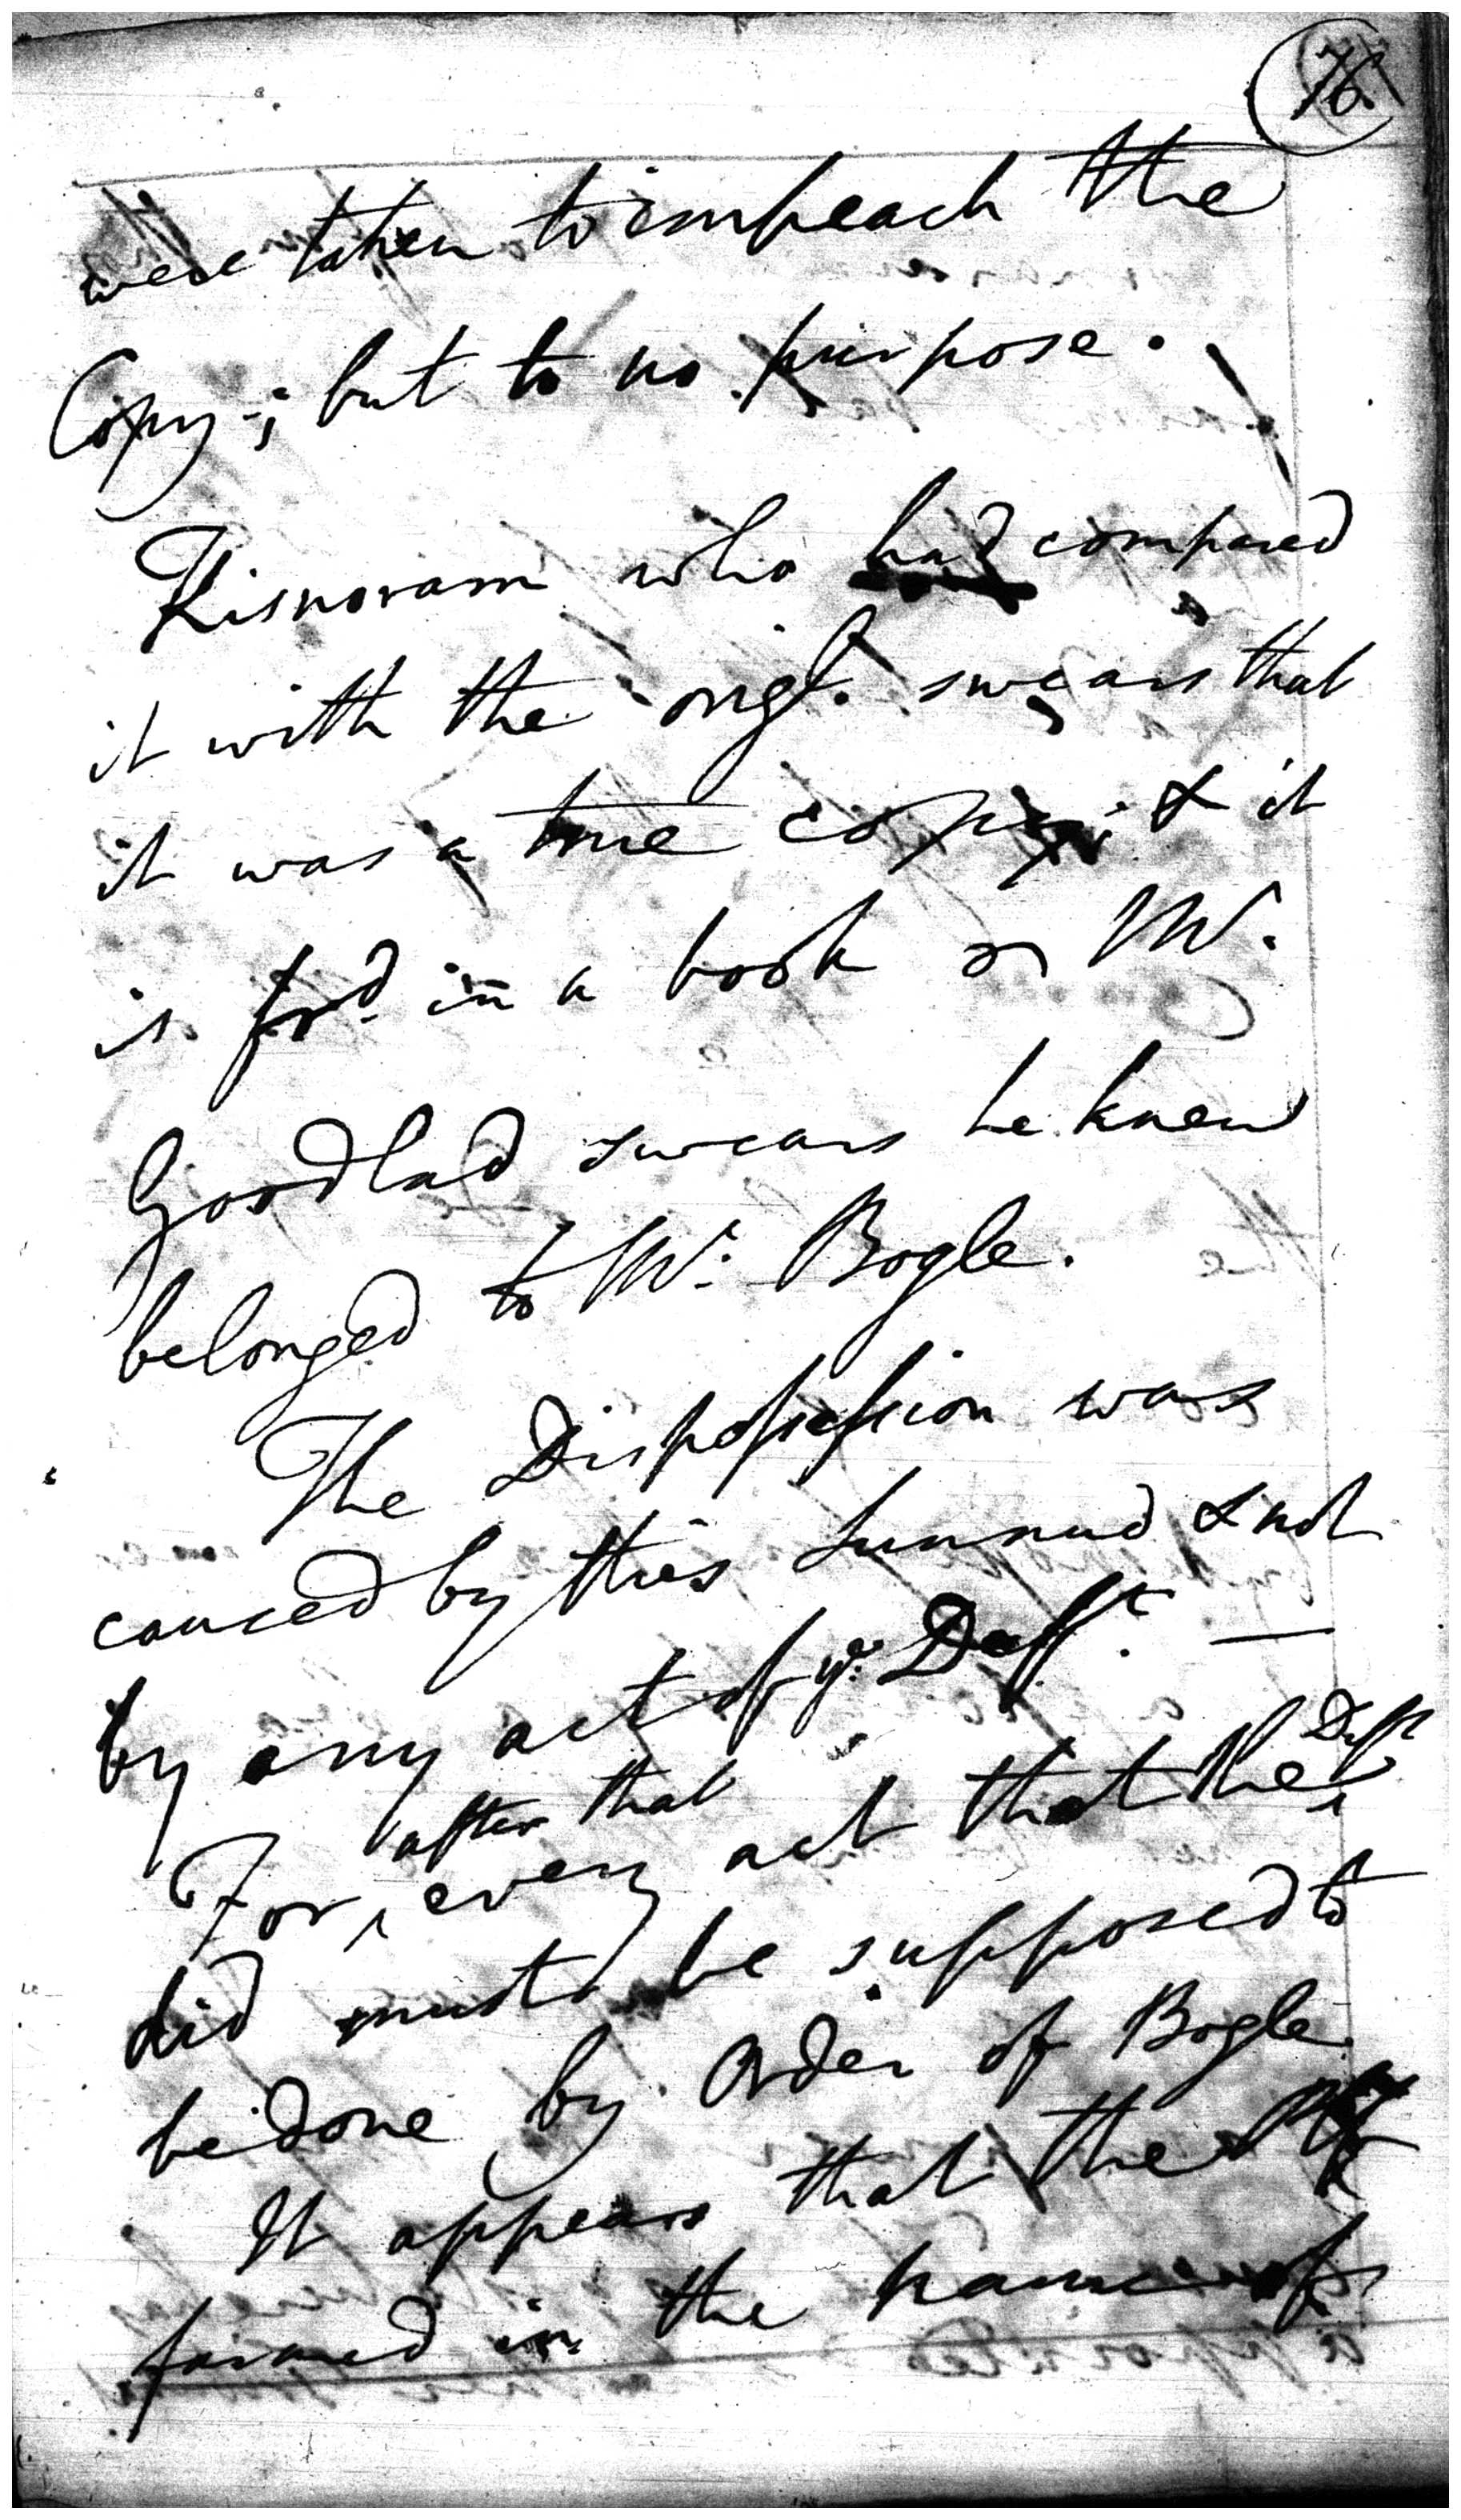 76
were taken to impeach the
Copy; but to no purpose.
Kisnoram who had compared
it with the origl. swears that
it was a true copy; & it
is fod. in a book
Mr.
Goodlad swears he knew
belonged to Mr. Bogle.
The Dispossession was
caused by this Sunnud & not
by any act of ye. Defft. —
after that
Defft
For, every act that the
did must be supposed to
be done by Order of Bogle.
It appears that the Plf
farmed in the name of